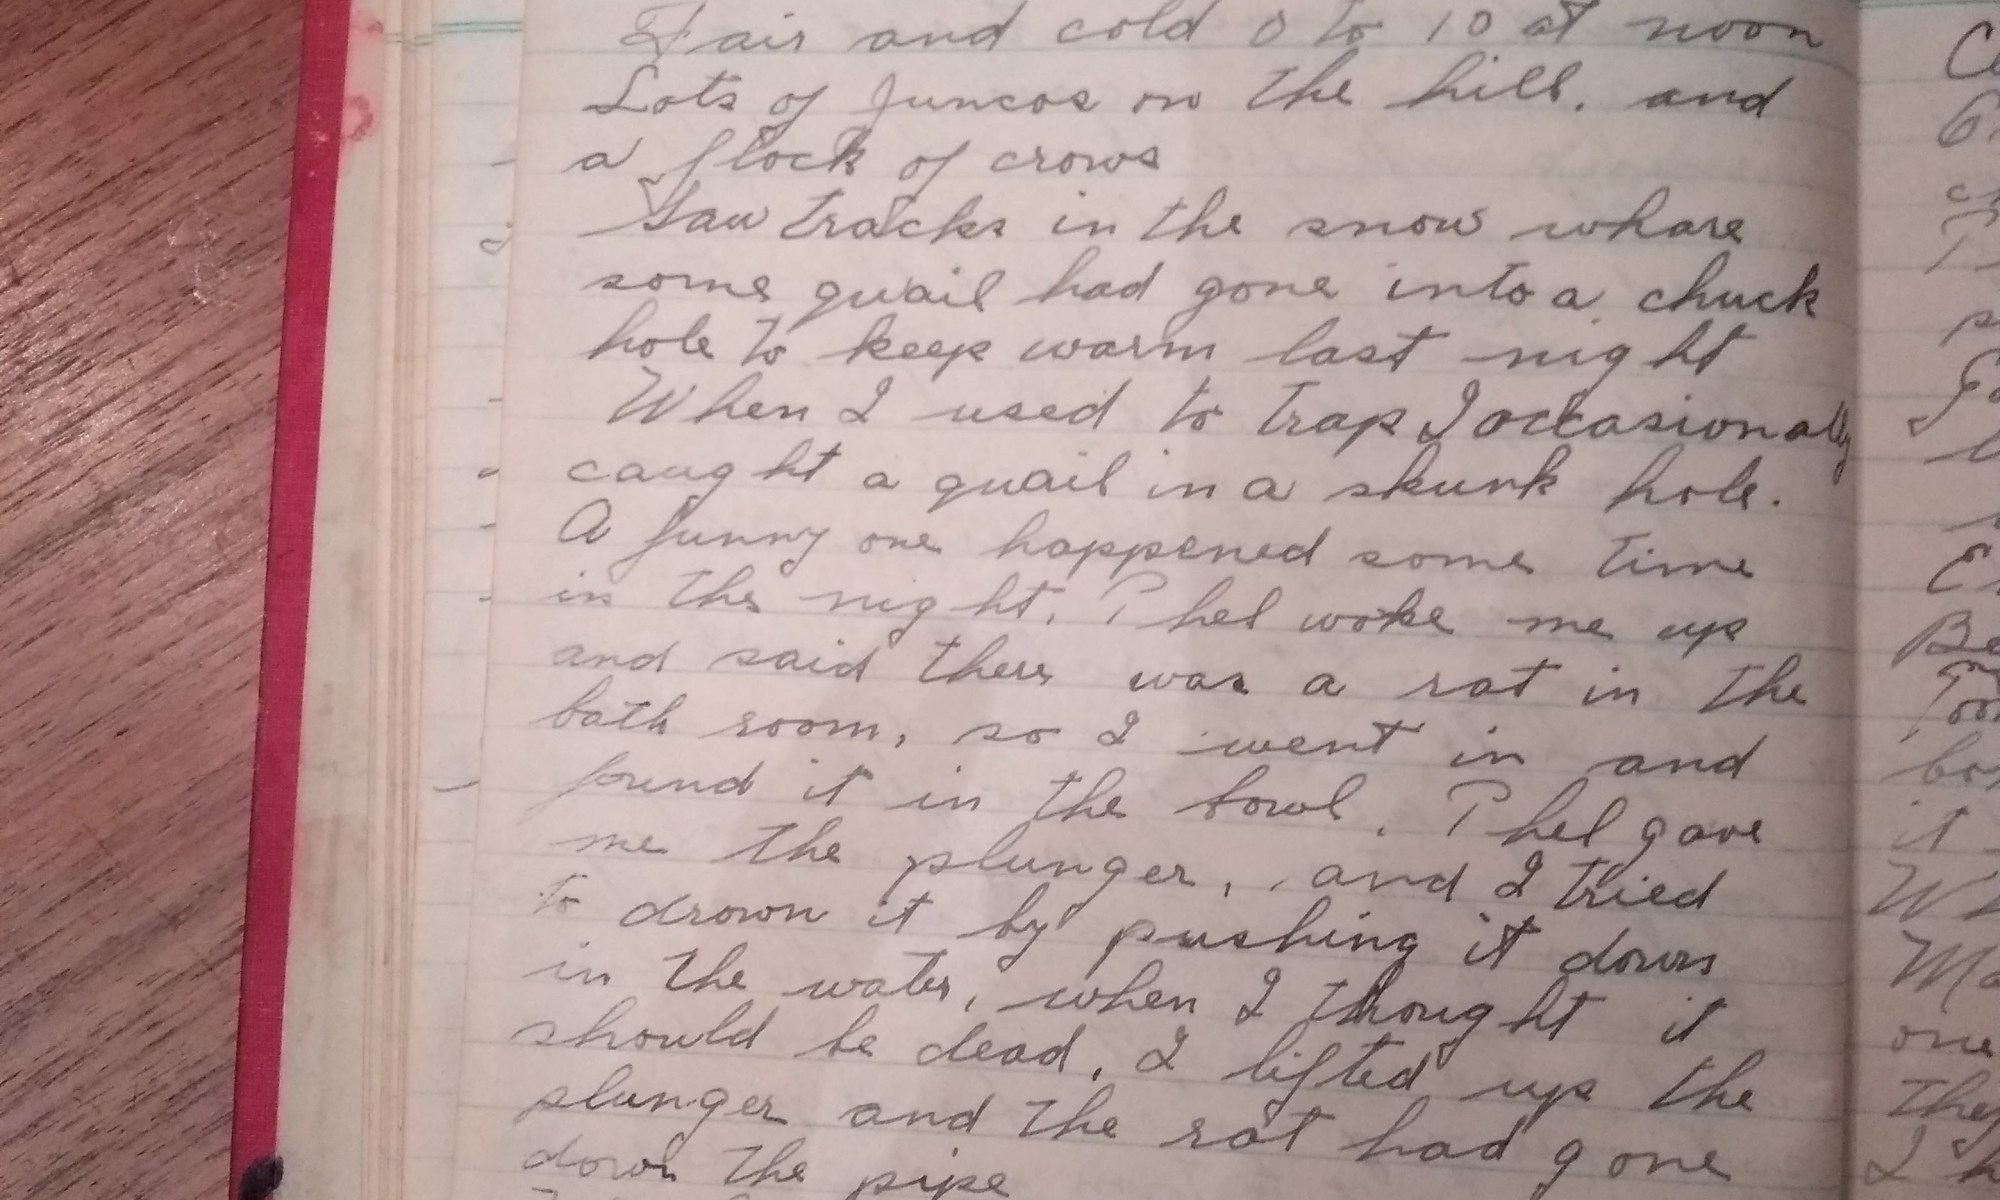 Fair and cold 0 to 10 at noon
Lots of Juncos on the hill. and
a flock of crows
Saw tracks in the snow whare
some quail had gone into a chuck
hole to keep warm last night
When I used to trap I occasionally
caught a quail in a skunk hole.
A funny one happened some time
in the night. Phel woke me up
and said there was a rat in the
bath room, so I went in and
found it in the bowl. Phel gave
me the plunger, and I tried
to drown it by pushing it down
in the water, when I thought it
should be dead, I lifted up the
plunger and the rat had gone
down the pipe